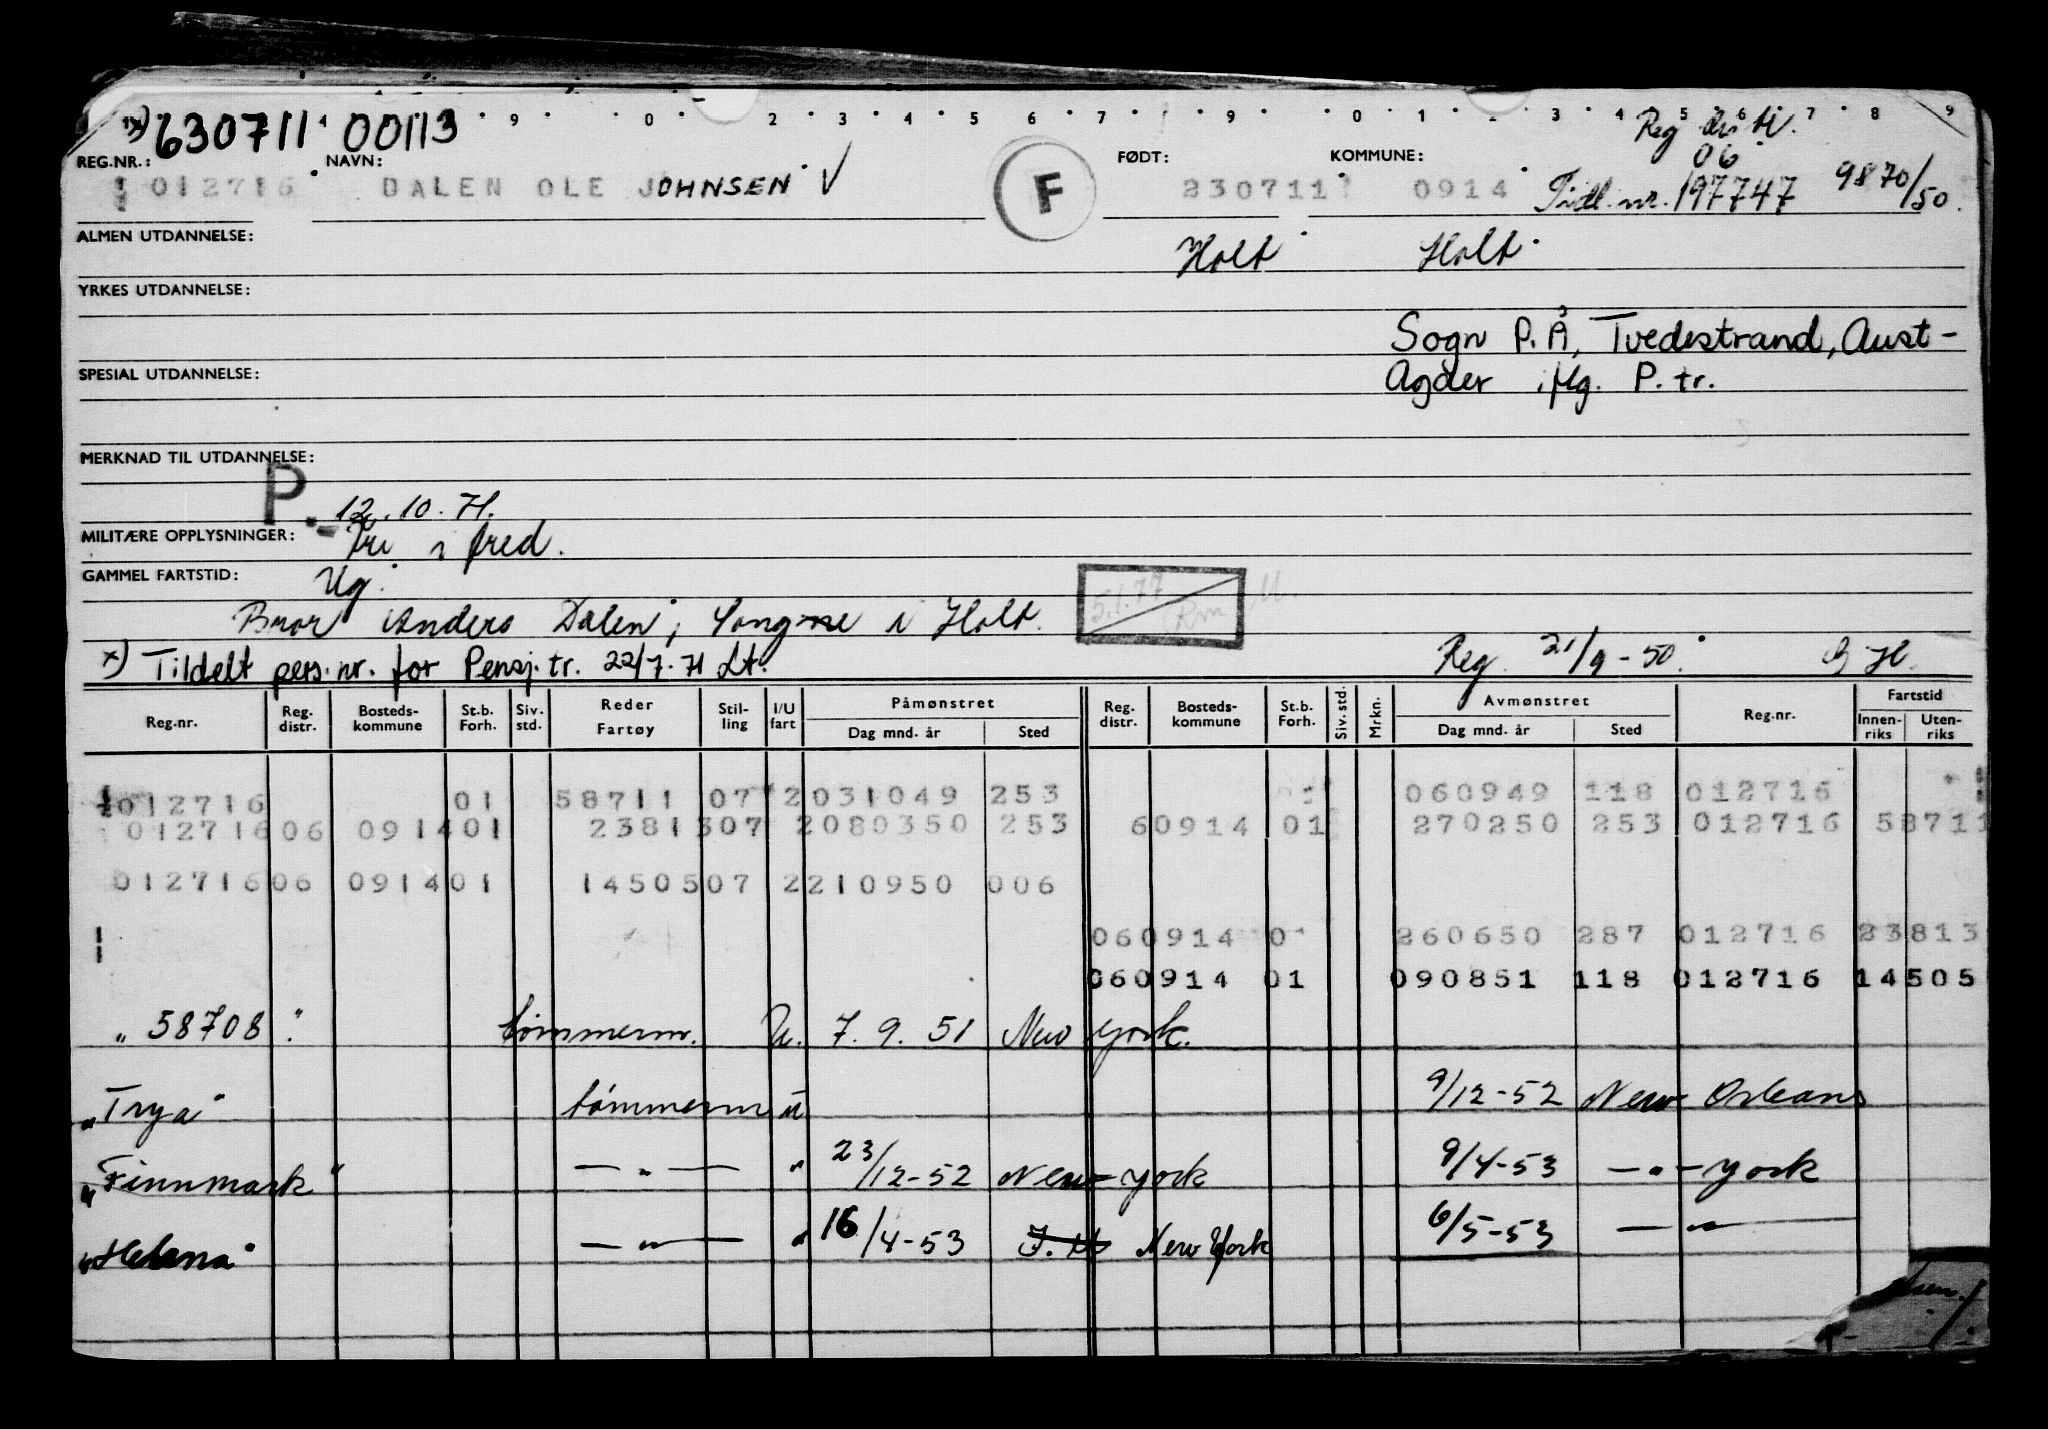 x) 630711 00113
9 0 2 3 4 5 6 7 9 0 1 2 3 4 5 6 7 8 9
REG.NR.: NAVN: FØDT: KOMMUNE: Reg distr.
06
012716 DALEN OLE JOHNSEN V F 230711 0914 Tidl. nr. 197747 9870/50.
ALMEN UTDANNELSE: Holt Holt
YRKES UTDANNELSE:
Sogn P.Å, Tvedestrand, Aust-
SPESIAL UTDANNELSE: Agder iflg. P. tr.
MERKNAD TIL UTDANNELSE:
P. 12.10.71.
MILITÆRE OPPLYSNINGER: Fri i fred.
GAMMEL FARTSTID: Ug.
Bror Anders Dalen, Songne i Holt. 5.1.77 Rm
x) Tildelt pers.nr. for Pensj.tr. 22/7.71 Lt. Reg. 21/9-50.
Reg.nr. Reg. distr. Bosteds-kommune St.b. Forh. Siv. std. Reder Fartøy Stil-ling I/U fart Påmønstret Dag mnd. år Sted Reg. distr. Bosteds-kommune St.b. Forh. Siv. std. Mrkn. Avmønstret Dag mnd. år Sted Reg.nr. Fartstid Innen-riks Uten-riks
012716 01 58711 07 2 031049 253 1 060949 118 012716
012716 06 0914 01 23813 07 2 080350 253 60914 01 270250 253 012716 58711
012716 06 0914 01 14505 07 2 210950 006
060914 01 260650 287 012716 23813
060914 01 090851 118 012716 14505
"58708" tømmerm. U. 7.9.51 New York.
"Trya" tømmerm u 9/12-52 New-Orleans
"Finnmark" — " — " 23/12-52 New-York 9/4-53 — " — York
"Helena" — " — " 16/4-53 New York 6/5-53 — " —